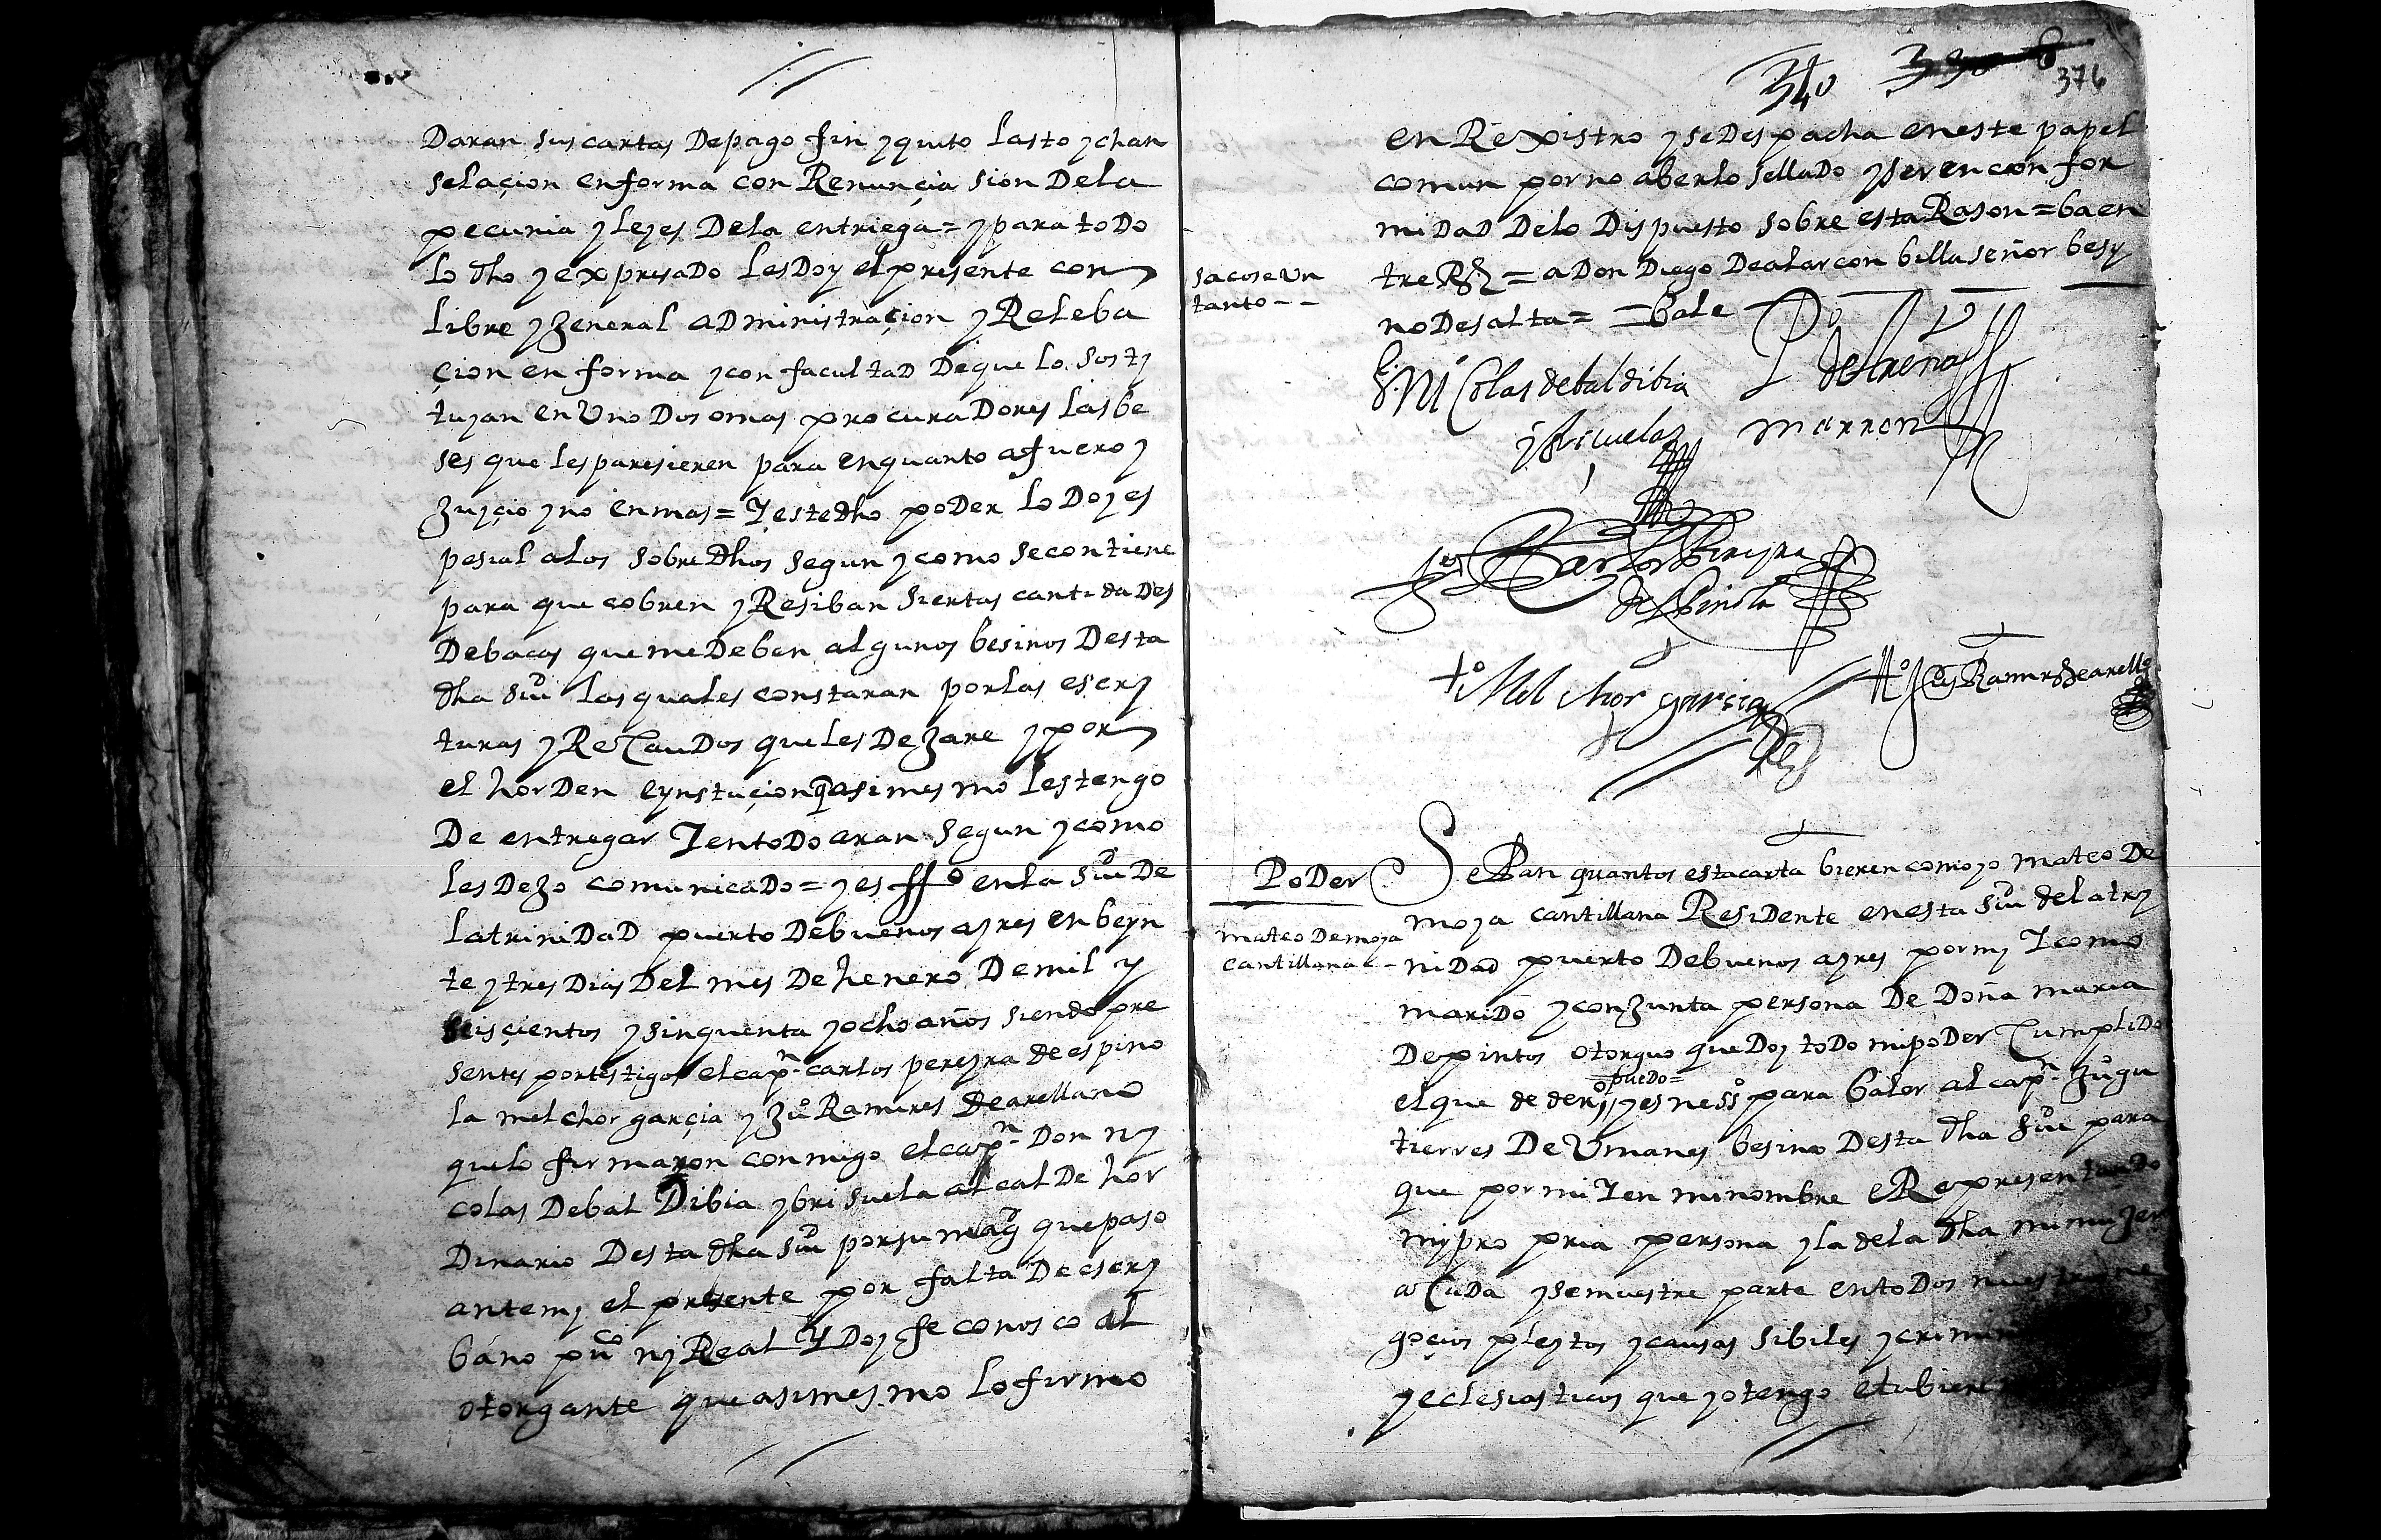 Daran sus cartas Depago fin y quito lasto y chan
selaçion enforma con Renunçia sion Dela
pecunia y leyes Dela entriega = y para todo
lo dho y expresado les Doy el presente con
libre y general administraçion y Releba
çion en forma y con facultad De que lo sosty
tuyan en Uno Dos o mas procuradores las be
ses que les paresieren para en quanto a fuero y
Juyçio y no en mas = Y este dho poder lo Doy es
pesial alos sobredhos segun y como se contiene
para que cobren y Resiban siertas cantidades
De bacas que me Deben algunos besinos Desta
dha siud las quales constaran por las escry
turas y Recaudos que les Dejare y por
el horden e ynstuçion q asimesmo les tengo
De entregar Y en todo aran segun y como
les Dejo comunicado = y es ffo en la siud De
la trinidad puerto De buenos ayres en beyn
te y tres Dias Del mes De henero De mil y
seisçientos y sinquenta y ocho años siendo pre
sentes por testigos el capn carlos pereyra de espino
la melchor garçia y Juo Ramires De arellano
que lo firmaron conmigo el capn Don ny
colas De bal Dibia y brisuela alcalde hor
Dinario Desta dha siud por su magd que paso
ante my el presente por falta De escry
bano puco ny Real Y Doy fe conosco al
otorgante que asimesmo lo firmo
340 376
en Rexistro y se Despacha en este papel
comun por no aberlo sellado y ser en confor
midad Delo Dispuesto sobre esta Rason = ba en
tre Rs = a Don Diego De alarcon billaseñor besy
no De salta = = Bale
saco se Un
tanto - -
Ni Colas de baldibia
y Brisuela
marron
Carlos Pereyra
de Espinola
to Melchor garçia
to Ramirs De arellо
PoDer
mateo De moja
cantillana
SePan quantos esta carta bieren como yo mateo De
moja cantillana Residente en esta siud de la try
nidad puerto De buenos ayres por my Y como
marido y conjunta persona De Doña maria
De pintos otorguo que Doy todo mi poder Cumplido
puedo =
el que de dero y es nesso para baler al capn Juo gu
tierres De Umanes besino Desta dha siud para
que por mi Y en mi nombre e Representando
my propria persona y la de la dha mi mujer
a Cuda y se muestre parte en todos nuestros ne
goçios pleytos y causas sibiles y crimin
y eclesiasticos que yo tengo e tubiere